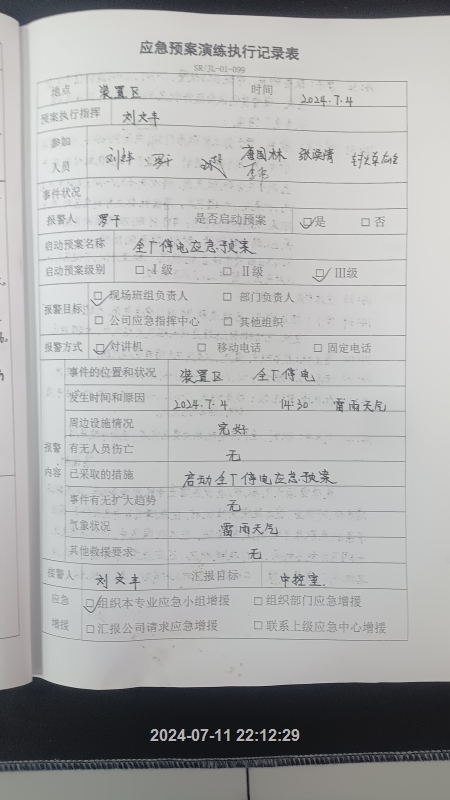 应急预案演练执行记录表
SR/JL-01-099
地点 装置区 时间 2024.7.4
预案执行指挥 刘文丰
参加人员 罗干 唐国林 张溪清
事件状况
报警人 罗干 是否启动预案 ☑是 □否
启动预案名称 全厂停电应急预案
启动预案级别 □Ⅰ级 □Ⅱ级 ☑Ⅲ级
报警目标 ☑现场班组负责人 □部门负责人
□公司应急指挥中心 □其他组织
报警方式 ☑对讲机 □移动电话 □固定电话
报警内容 事件的位置和状况 装置区 全厂停电
发生时间和原因 2024.7.4 14:30 雷雨天气
周边设施情况 完好
有无人员伤亡 无
已采取的措施 启动全厂停电应急预案
事件有无扩大趋势 无
气象状况 雷雨天气
其他救援要求 无
接警人 刘文丰 汇报目标 中控室
应急增援 ☑组织本专业应急小组增援 □组织部门应急增援
□汇报公司请求应急增援 □联系上级应急中心增援
2024-07-11 22:12:29